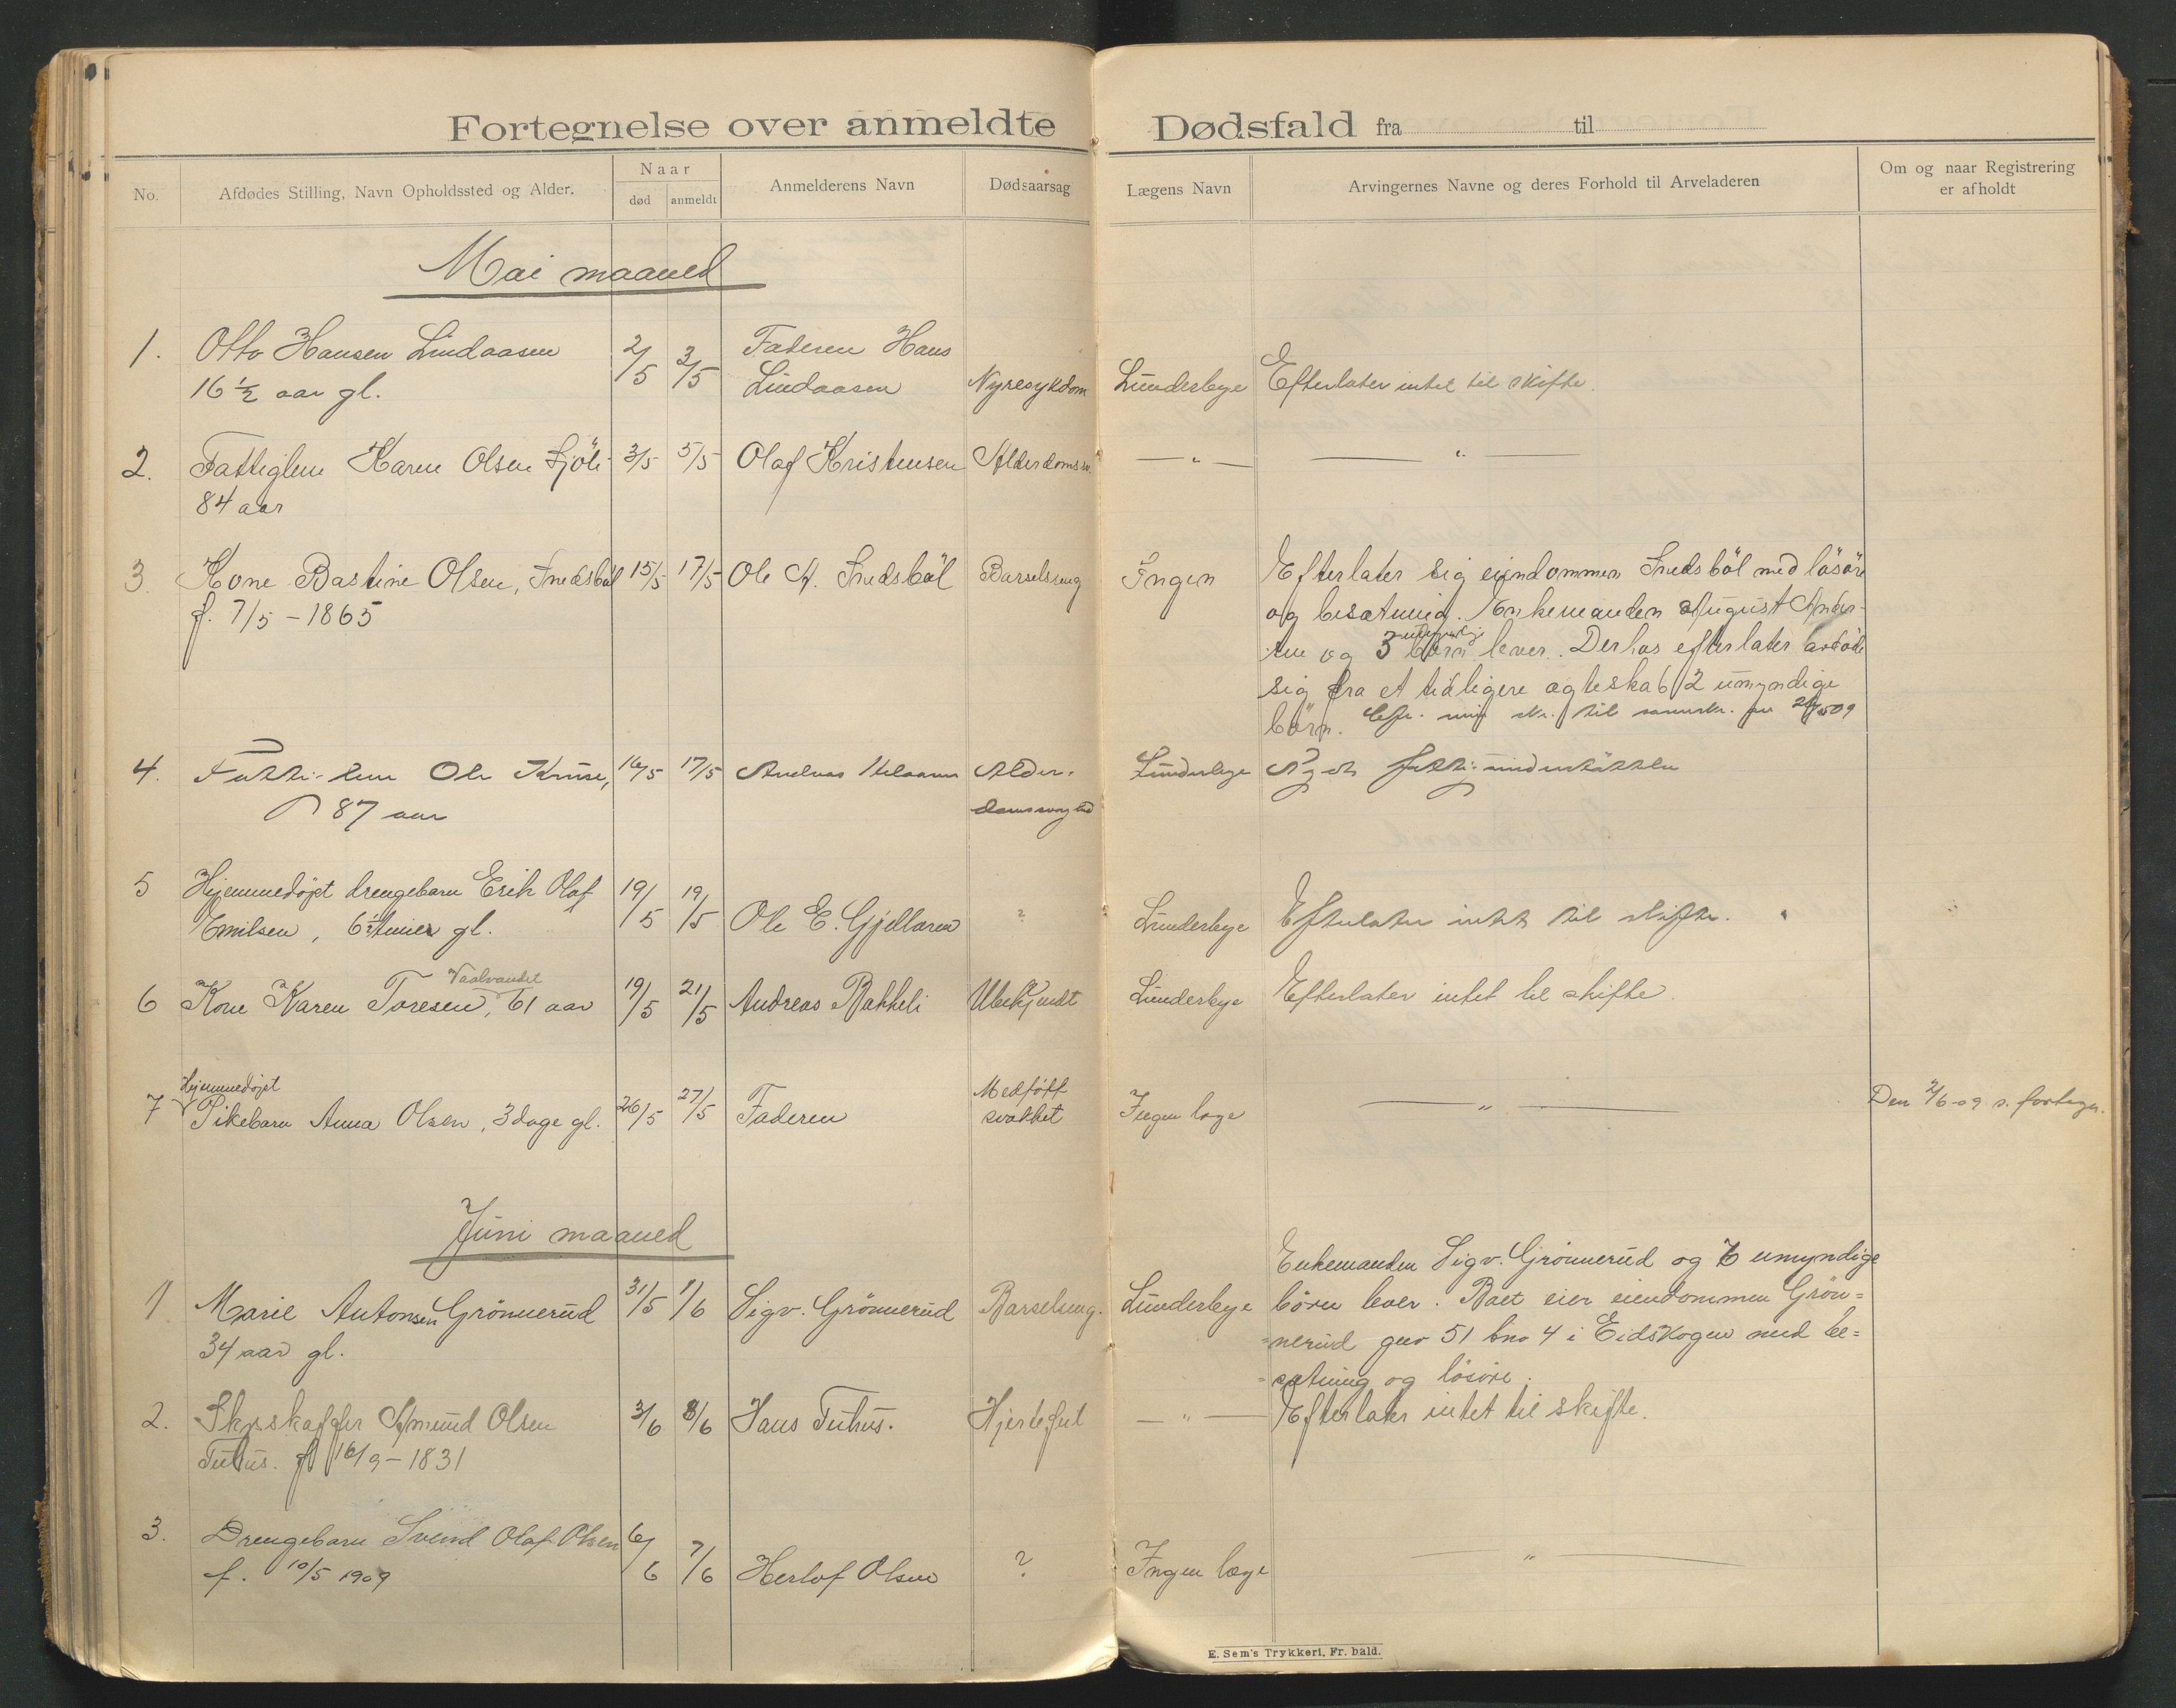 Fortegnelse over anmeldte Dødsfald fra til
No.
Afdødes Stilling, Navn Opholdssted og Alder.
Naar
død
anmeldt
Anmelderens Navn
Dødsaarsag
Lægens Navn
Arvingernes Navne og deres Forhold til Arveladeren
Om og naar Registrering
er afholdt
Mai maaned
1. Otto Hansen Lindaasen 2/5 3/5 Faderen Hans
16 ½ aar gl. Lindaasen Nyresykdom Lunderbye Efterlater intet til skifte.
2. Fattiglem Karen Olsen Sjöli 3/5 5/5 Olaf Kristensen Alderdomssv. — " — — " —
84 aar
3. Kone Bastine Olsen, Snedsböl 15/5 17/5 Ole A. Snedsböl Barselseng Ingen Efterlater sig eiendommen Snedsböl med lösöre
f. 7/5 - 1865 og besætning. Enkemanden August Ander-
sen og 3 umyndige börn lever. Derhos efterlater avdöde
sig fra et tidligere egteskab 2 umyndige
börn. til
4. Fattiglem Ole Kruse, 16/5 17/5 Andreas Alder- Lunderbye Nöt fattigunderstöttelse
87 aar domssvaghed
5 Hjemmedöpt drengebarn Erik Olaf 19/5 19/5 Ole E. Gjellaren ?
Emilsen, 6 ½ timer gl. Lunderbye Efterlater intet til skifte.
Vaalvandet
6 Kone Karen Toresen, 61 aar 19/5 21/5 Andreas Bakkeli Ubekjendt Lunderbye Efterlater intet til skifte.
Hjemmedöpt
7 Pikebarn Anna Olsen, 3 dage gl. 26/5 27/5 Faderen Medfött
svakhet Ingen læge — " — Den 2/6-09 s. fortegn.
Juni maaned
Enkemanden Sigv. Grönnerud og 6 umyndige
1 Marie Antonsen Grönnerud 31/5 1/6 Sigv. Grönnerud Barselseng. Lunderbye börn lever. Boet eier eiendommen Grön=
34 aar gl. =nerud gno 51 bno 4 i Eidskogen med be=
=sætning og lösöre.
2. Skysskaffer Amund Olsen 3/6 8/6 Hans Tuhus. Hjertefeil — " — Efterlater intet til skifte.
Tuhus. f. 16/9 - 1831
3. Drengebarn Svend Olaf Olsen 6/6 7/6 Herlof Olsen ? Ingen læge — " —
f. 10/5 1909
E. Sem's Trykkeri, Fr. hald.